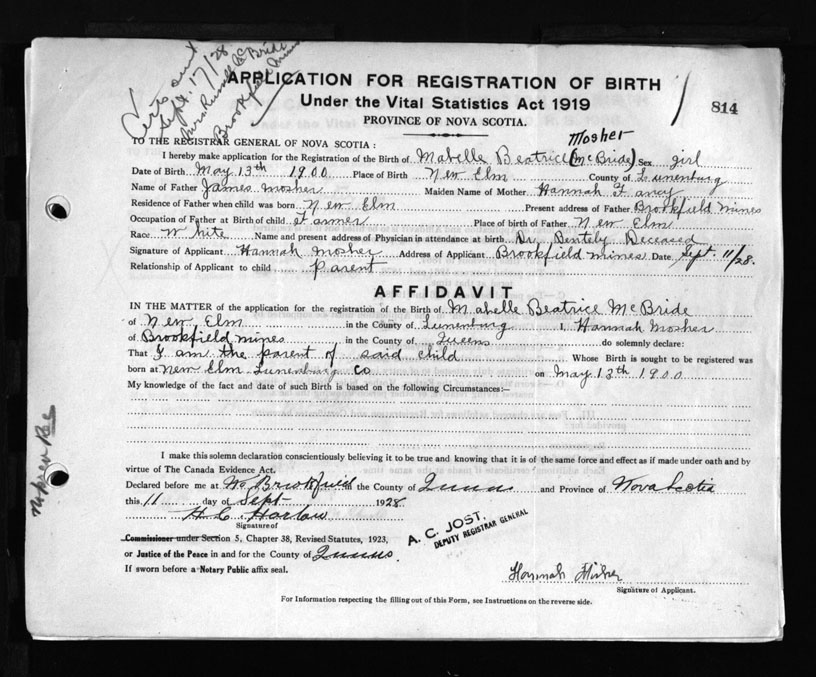 Cert. sent
Sept. 17/28
Mrs Russell McBride
Brookfield Mines
APPLICATION FOR REGISTRATION OF BIRTH
814
Under the Vital Statistics Act 1919
PROVINCE OF NOVA SCOTIA.
TO THE REGISTRAR GENERAL OF NOVA SCOTIA:
Mosher
I hereby make application for the Registration of the Birth of Mabelle Beatrice (McBride) Sex girl
Date of Birth May 13th 1900 Place of Birth New Elm County of Lunenburg
Name of Father James Mosher Maiden Name of Mother Hannah Fancy
Residence of Father when child was born New Elm Present address of Father Brookfield Mines
Occupation of Father at Birth of child Farmer Place of birth of Father New Elm
Race White Name and present address of Physician in attendance at birth Dr. Bentely Deceased
Signature of Applicant Hannah Mosher Address of Applicant Brookfield mines Date Sept. 11/28.
Relationship of Applicant to child parent
AFFIDAVIT
IN THE MATTER of the application for the registration of the Birth of Mabelle Beatrice McBride
of New Elm in the County of Lunenburg I, Hannah Mosher
of Brookfield mines in the County of Queens do solemnly declare:
That I am the parent of said child Whose Birth is sought to be registered was
born at New Elm Lunenburg Co on May 13th 1900
My knowledge of the fact and date of such Birth is based on the following Circumstances:–
I make this solemn declaration conscientiously believing it to be true and knowing that it is of the same force and effect as if made under oath and by
virtue of The Canada Evidence Act.
Declared before me at No Brookfield in the County of Queens and Province of Nova Scotia
this 11 day of Sept 1928
H C Harlow
Signature of
Commissioner under Section 5, Chapter 38, Revised Statutes, 1923,
or Justice of the Peace in and for the County of Queens.
If sworn before a Notary Public affix seal.
A. C. JOST,
DEPUTY REGISTRAR GENERAL
Hannah Mosher
Signature of Applicant.
For Information respecting the filling out of this Form, see Instructions on the reverse side.